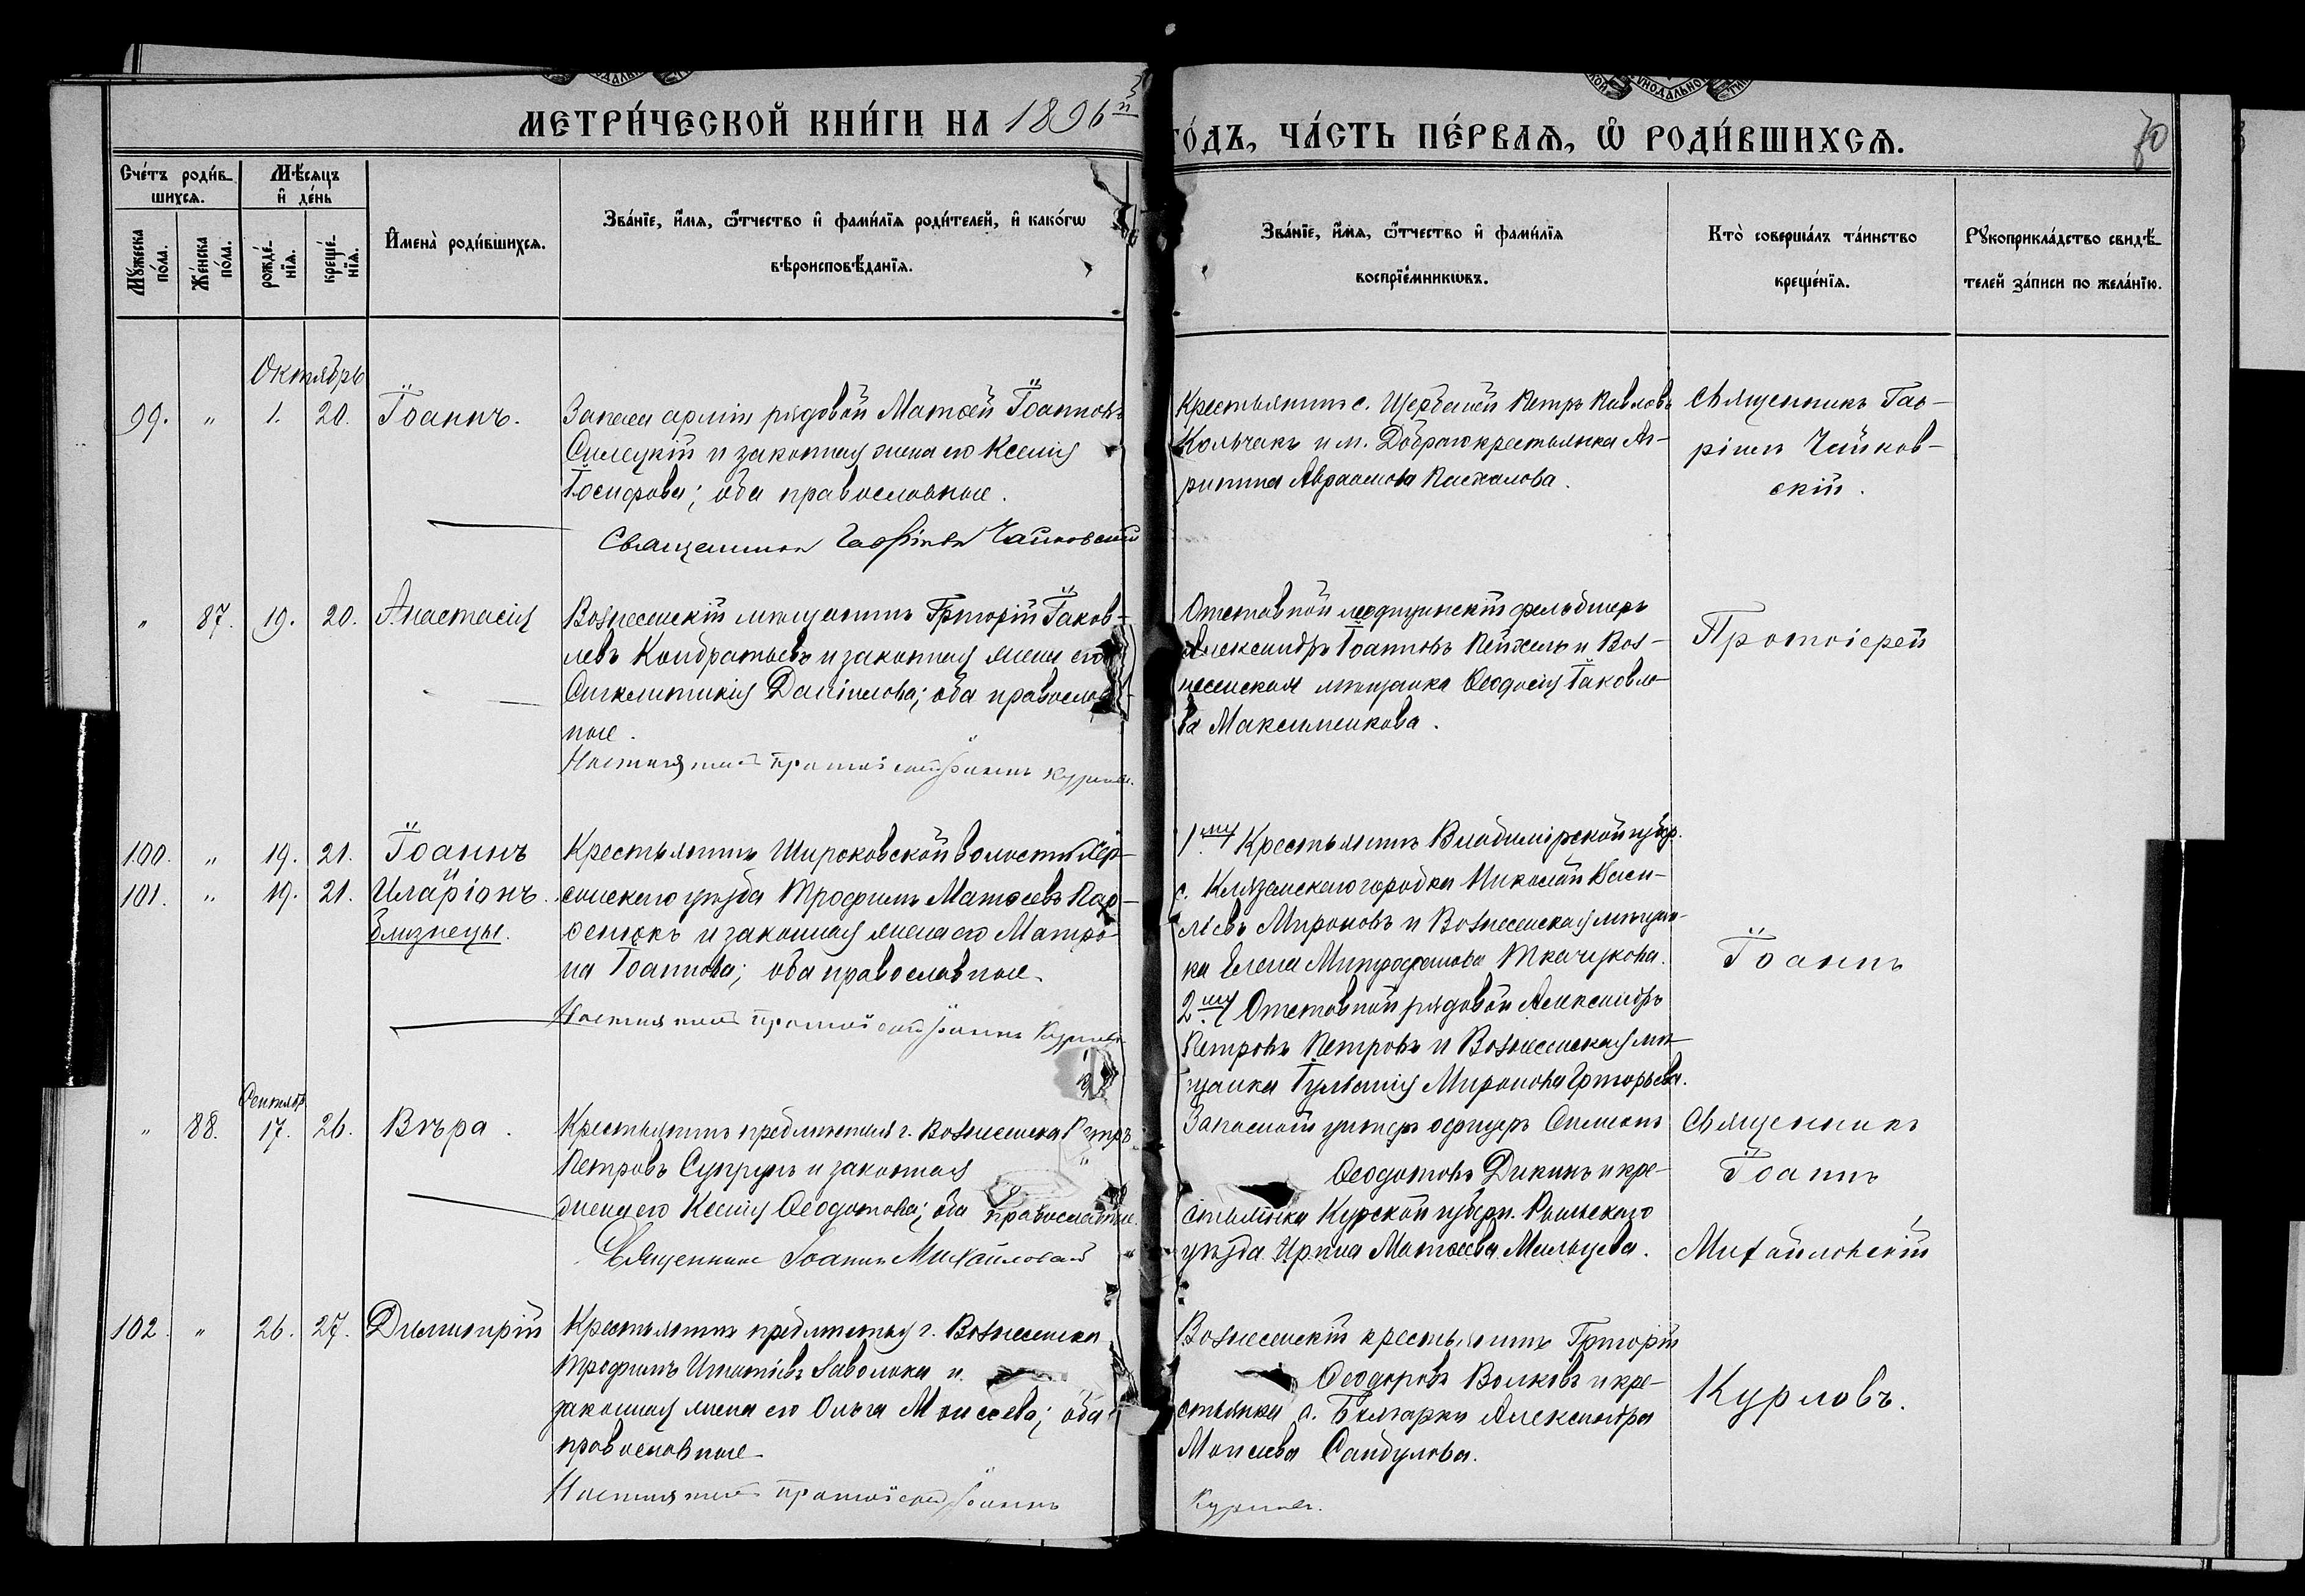 МЕТРИ́ЧЕСКОЙ КНИ́ГИ НА 1896й
ГО́ДЪ, ЧА́СТЬ ПЕ́РВАѦ, Ѡ҆ РОДИ́ВШИХСѦ.
70
Сче́тъ роди́в-
шихсѧ.
Мѣ́сѧцъ
и҆ де́нь
Мꙋ́жеска
по́ла.
Же́нска
по́ла.
рожде́-
нїѧ.
креще́-
нїѧ.
И҆мена̀ роди́вшихсѧ.
Зва́нїе, и҆́мѧ, ѻ҆́тчество и҆ фами́лїѧ роди́телей, и҆ како́гѡ
вѣроисповѣ́данїѧ.
Зва́нїе, и҆́мѧ, ѻ҆́тчество и҆ фами́лїѧ
воспрїе́мникѡвъ.
Кто̀ соверша́лъ та́инство
креще́нїѧ.
Рꙋкоприкла́дство свидѣ́-
телей за́писи по жела́нїю.
Октябрь
99. " 1. 20. Іоаннъ.
Запаса арміи рядовой Матѳей Іоанновъ
Силецкій и законная жена его Ксенія
Іосифова; оба православные.
Священникъ Гавріилъ Чайковскій
Крестьянинъ с. Щербаней Петръ Павловъ
Кольчакъ и м. Добраго крестьянка Аг-
рипина Авраамова Паскалова.
Священникъ Гав-
ріилъ Чайков-
скій.
" 87. 19. 20. Анастасія
Вознесенскій мѣщанинъ Григорій Іаков-
левъ Кондратьевъ и законная жена его
Синклитикія Даніилова; оба православ-
ные.
Настоятель Протоіерей Іоаннъ Курловъ.
Отставной медицинскій фельдшеръ
Александръ Іоанновъ и Воз-
несенская мѣщанка Ѳеодосія Іаковле-
ва Максименкова.
Протоіерей
100. " 19. 21. Іоаннъ
101. " 19. 21. Иларіонъ.
близнецы.
Крестьянинъ Широковской волости Хер-
сонскаго уѣзда Трофимъ Матѳеевъ Пар-
ѳенюкъ и законная жена его Матро-
на Іоаннова; оба православные
Настоятель Протоіерей Іоаннъ Курловъ
1му Крестьянинъ Владимірской губер.
с. Клязьмскаго городка Николай Васи-
ліевъ Мироновъ и Вознесенская мѣщан-
ка Елена Митрофанова Ткачукова.
2му Отставной рядовой Александръ
Петровъ Петровъ и Вознесенская мѣ-
щанка Іуліанія Миронова Григорьева.
Іоаннъ
Сентябр
" 88. 17. 26. Вѣра.
Крестьянинъ предмѣстья г. Вознесенска Петръ
Петровъ Супрунъ и законная
жена его Ксенія Ѳеодотова; оба православные.
Священникъ Іоаннъ Михайловскій
Запасной унтеръ офицеръ Симеонъ
Ѳеодотовъ Дикинъ и кре-
стьянка Курской губерн. Рыльскаго
уѣзда Ирина Матѳеева Мальцева.
Священникъ
Іоаннъ
Михайловскій
102. " 26. 27. Димитрій
Крестьянинъ предмѣстья г. Вознесенска
Трофимъ Игнатіевъ Заволока и
законная жена его Ольга Моисеева; оба
православные
Настоятель Протоіерей Іоаннъ
Курловъ.
Вознесенскій крестьянинъ Григорій
Ѳеодоровъ Волковъ и кре-
стьянка с. Болгарки Александра
Моисеева Сандулова.
Курловъ.